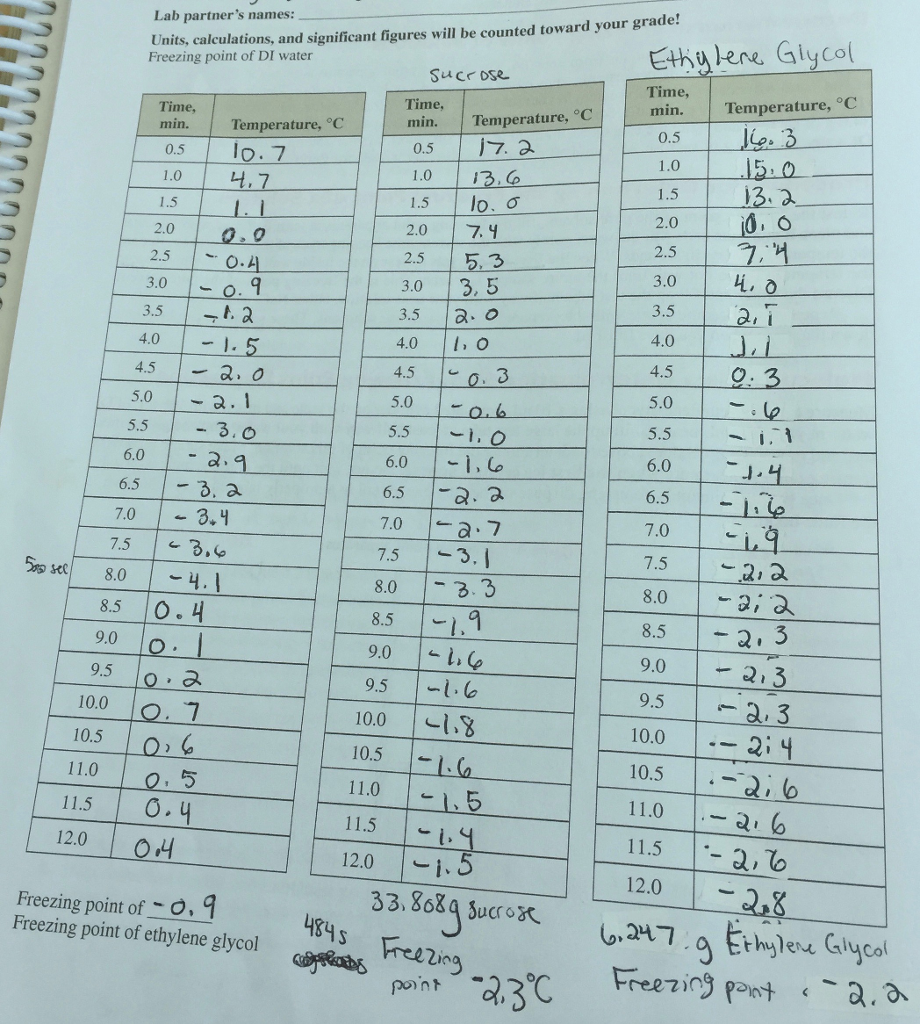 Lab partner's names:
Units, calculations, and significant figures will be counted toward your grade!
Freezing point of DI water
Sucrose
Ethylene Glycol
Time, min. Temperature, °C
0.5 10.7
1.0 4.7
1.5 1.1
2.0 0.0
2.5 -0.4
3.0 -0.9
3.5 -1.2
4.0 -1.5
4.5 -2.0
5.0 -2.1
5.5 -3.0
6.0 -2.9
6.5 -3.2
7.0 -3.4
7.5 -3.6
500 sec
8.0 -4.1
8.5 0.4
9.0 0.1
9.5 0.2
10.0 0.7
10.5 0.6
11.0 0.5
11.5 0.4
12.0 0.4
Time, min. Temperature, °C
0.5 17.2
1.0 13.6
1.5 10.0
2.0 7.4
2.5 5.3
3.0 3.5
3.5 2.0
4.0 1.0
4.5 -0.3
5.0 -0.6
5.5 -1.0
6.0 -1.6
6.5 -2.2
7.0 -2.7
7.5 -3.1
8.0 -3.3
8.5 -1.9
9.0 -1.6
9.5 -1.6
10.0 -1.8
10.5 -1.6
11.0 -1.5
11.5 -1.4
12.0 -1.5
Time, min. Temperature, °C
0.5 16.3
1.0 15.0
1.5 13.2
2.0 10.0
2.5 7.4
3.0 4.0
3.5 2.1
4.0 1.1
4.5 0.3
5.0 -.6
5.5 -1.1
6.0 -1.4
6.5 -1.6
7.0 -1.9
7.5 -2.2
8.0 -2.2
8.5 -2.3
9.0 -2.3
9.5 -2.3
10.0 -2.4
10.5 -2.6
11.0 -2.6
11.5 -2.6
12.0 -2.8
Freezing point of -0.9
Freezing point of ethylene glycol
33.868g Sucrose
484s
Freezing point -2.3°C
6.247 g Ethylene Glycol
Freezing point -2.2